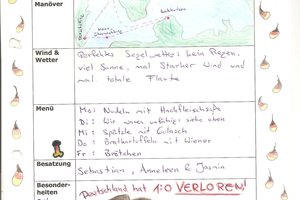 Manöver
Wind & Wetter
Perfektes Segelwetter: kein Regen,
viel Sonne, mal starker Wind und
mal totale Flaute
Menü
Mo: Nudeln mit Hackfleischsoße
Di: Wir waren unfähig siehe oben
Mi: Spätzle mit Gulasch
Do: Bratkartoffeln mit Wiener
Fr: Brötchen
Besatzung
Sebastian, Anneleen & Jasmin
Besonder-
heiten
Deutschland hat 1:0 VERLOREN!